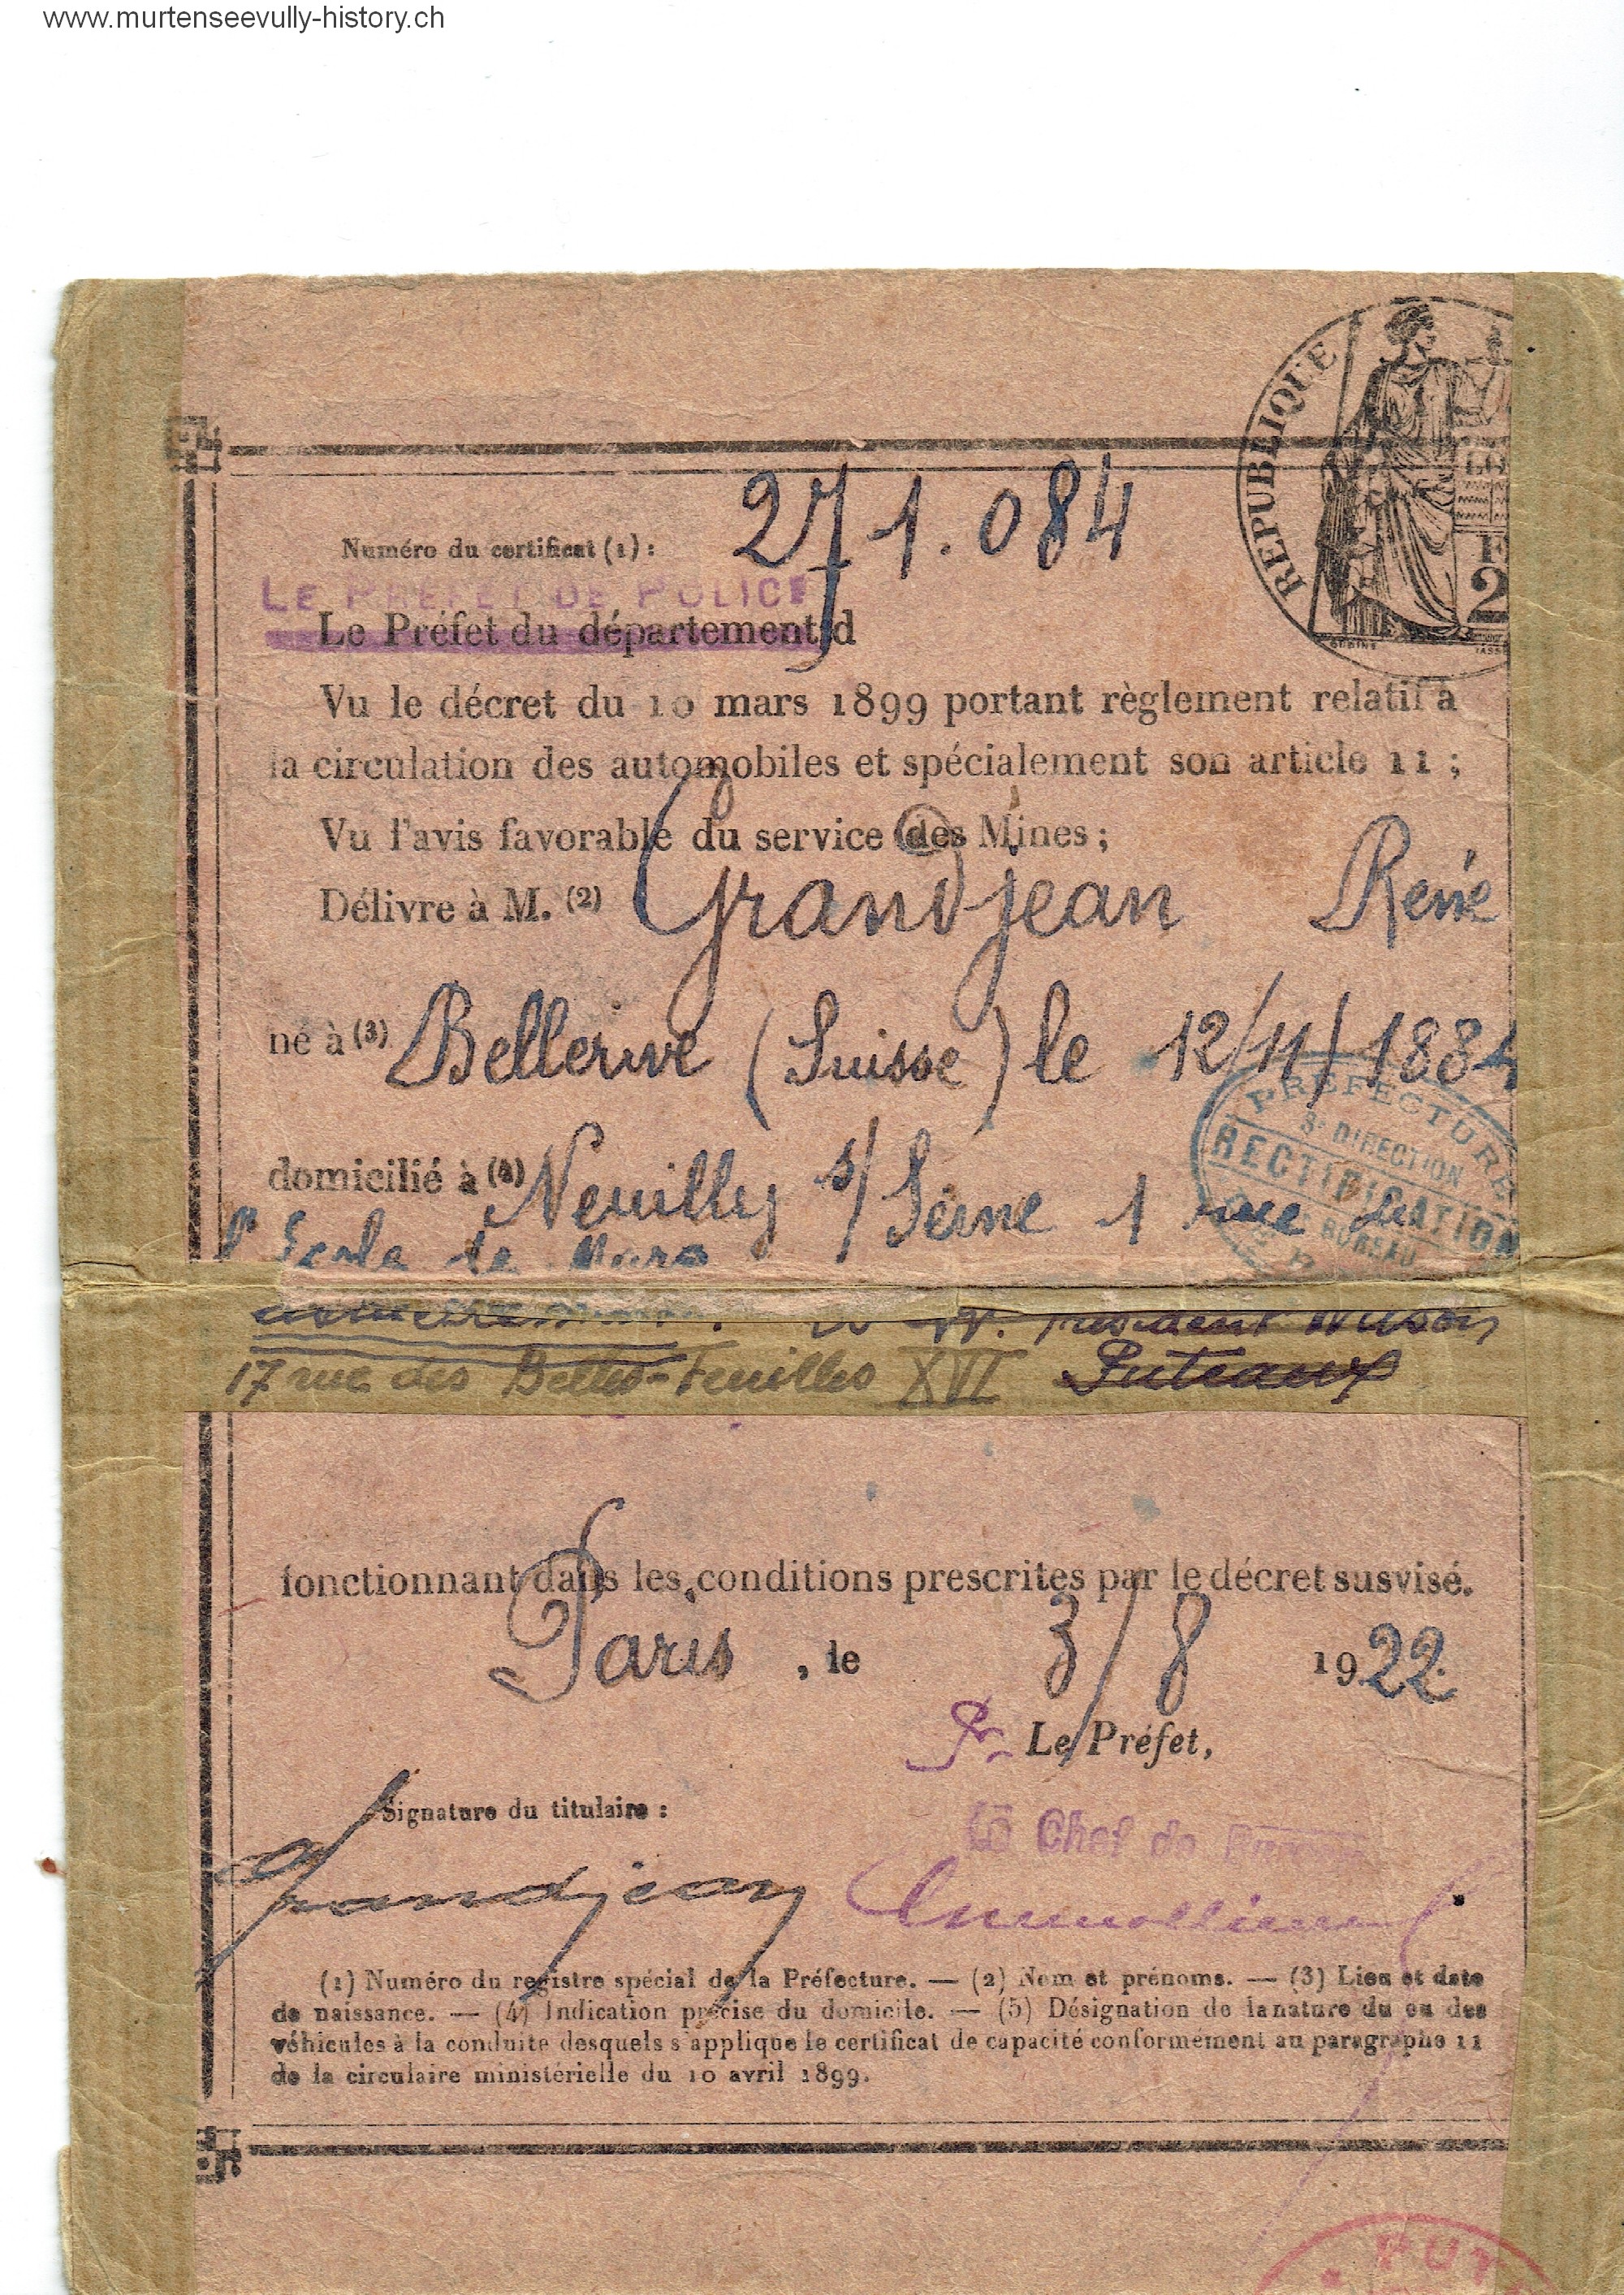 www.murtenseevully-history.ch
REPUBLIQUE
2
Numéro du certificat (1) : 271.084
LE PREFET DE POLICE
Le Préfet du département d
Vu le décret du 10 mars 1899 portant règlement relatif à
la circulation des automobiles et spécialement son article 11 ;
Vu l'avis favorable du service des Mines ;
Délivre à M. (2) Grandjean René
né à (3) Bellerive (Suisse) le 12/11/1884
PREFECTURE
DIRECTION
RECTIFICATION
BUREAU
domicilié à (4) Neuilly s/ Seine 1 rue de
l'Ecole de Mars
President Wilson
17 rue des Belles-Feuilles XVI Puteaux
fonctionnant dans les conditions prescrites par le décret susvisé.
Paris, le 3/8 1922
Pr. Le Préfet,
Signature du titulaire :
Le Chef de Bureau
Grandjean
(1) Numéro du registre spécial de la Préfecture. — (2) Nom et prénoms. — (3) Lieu et date
de naissance. — (4) Indication précise du domicile. — (5) Désignation de la nature du ou des
véhicules à la conduite desquels s'applique le certificat de capacité conformément au paragraphe 11
de la circulaire ministérielle du 10 avril 1899.
PUT